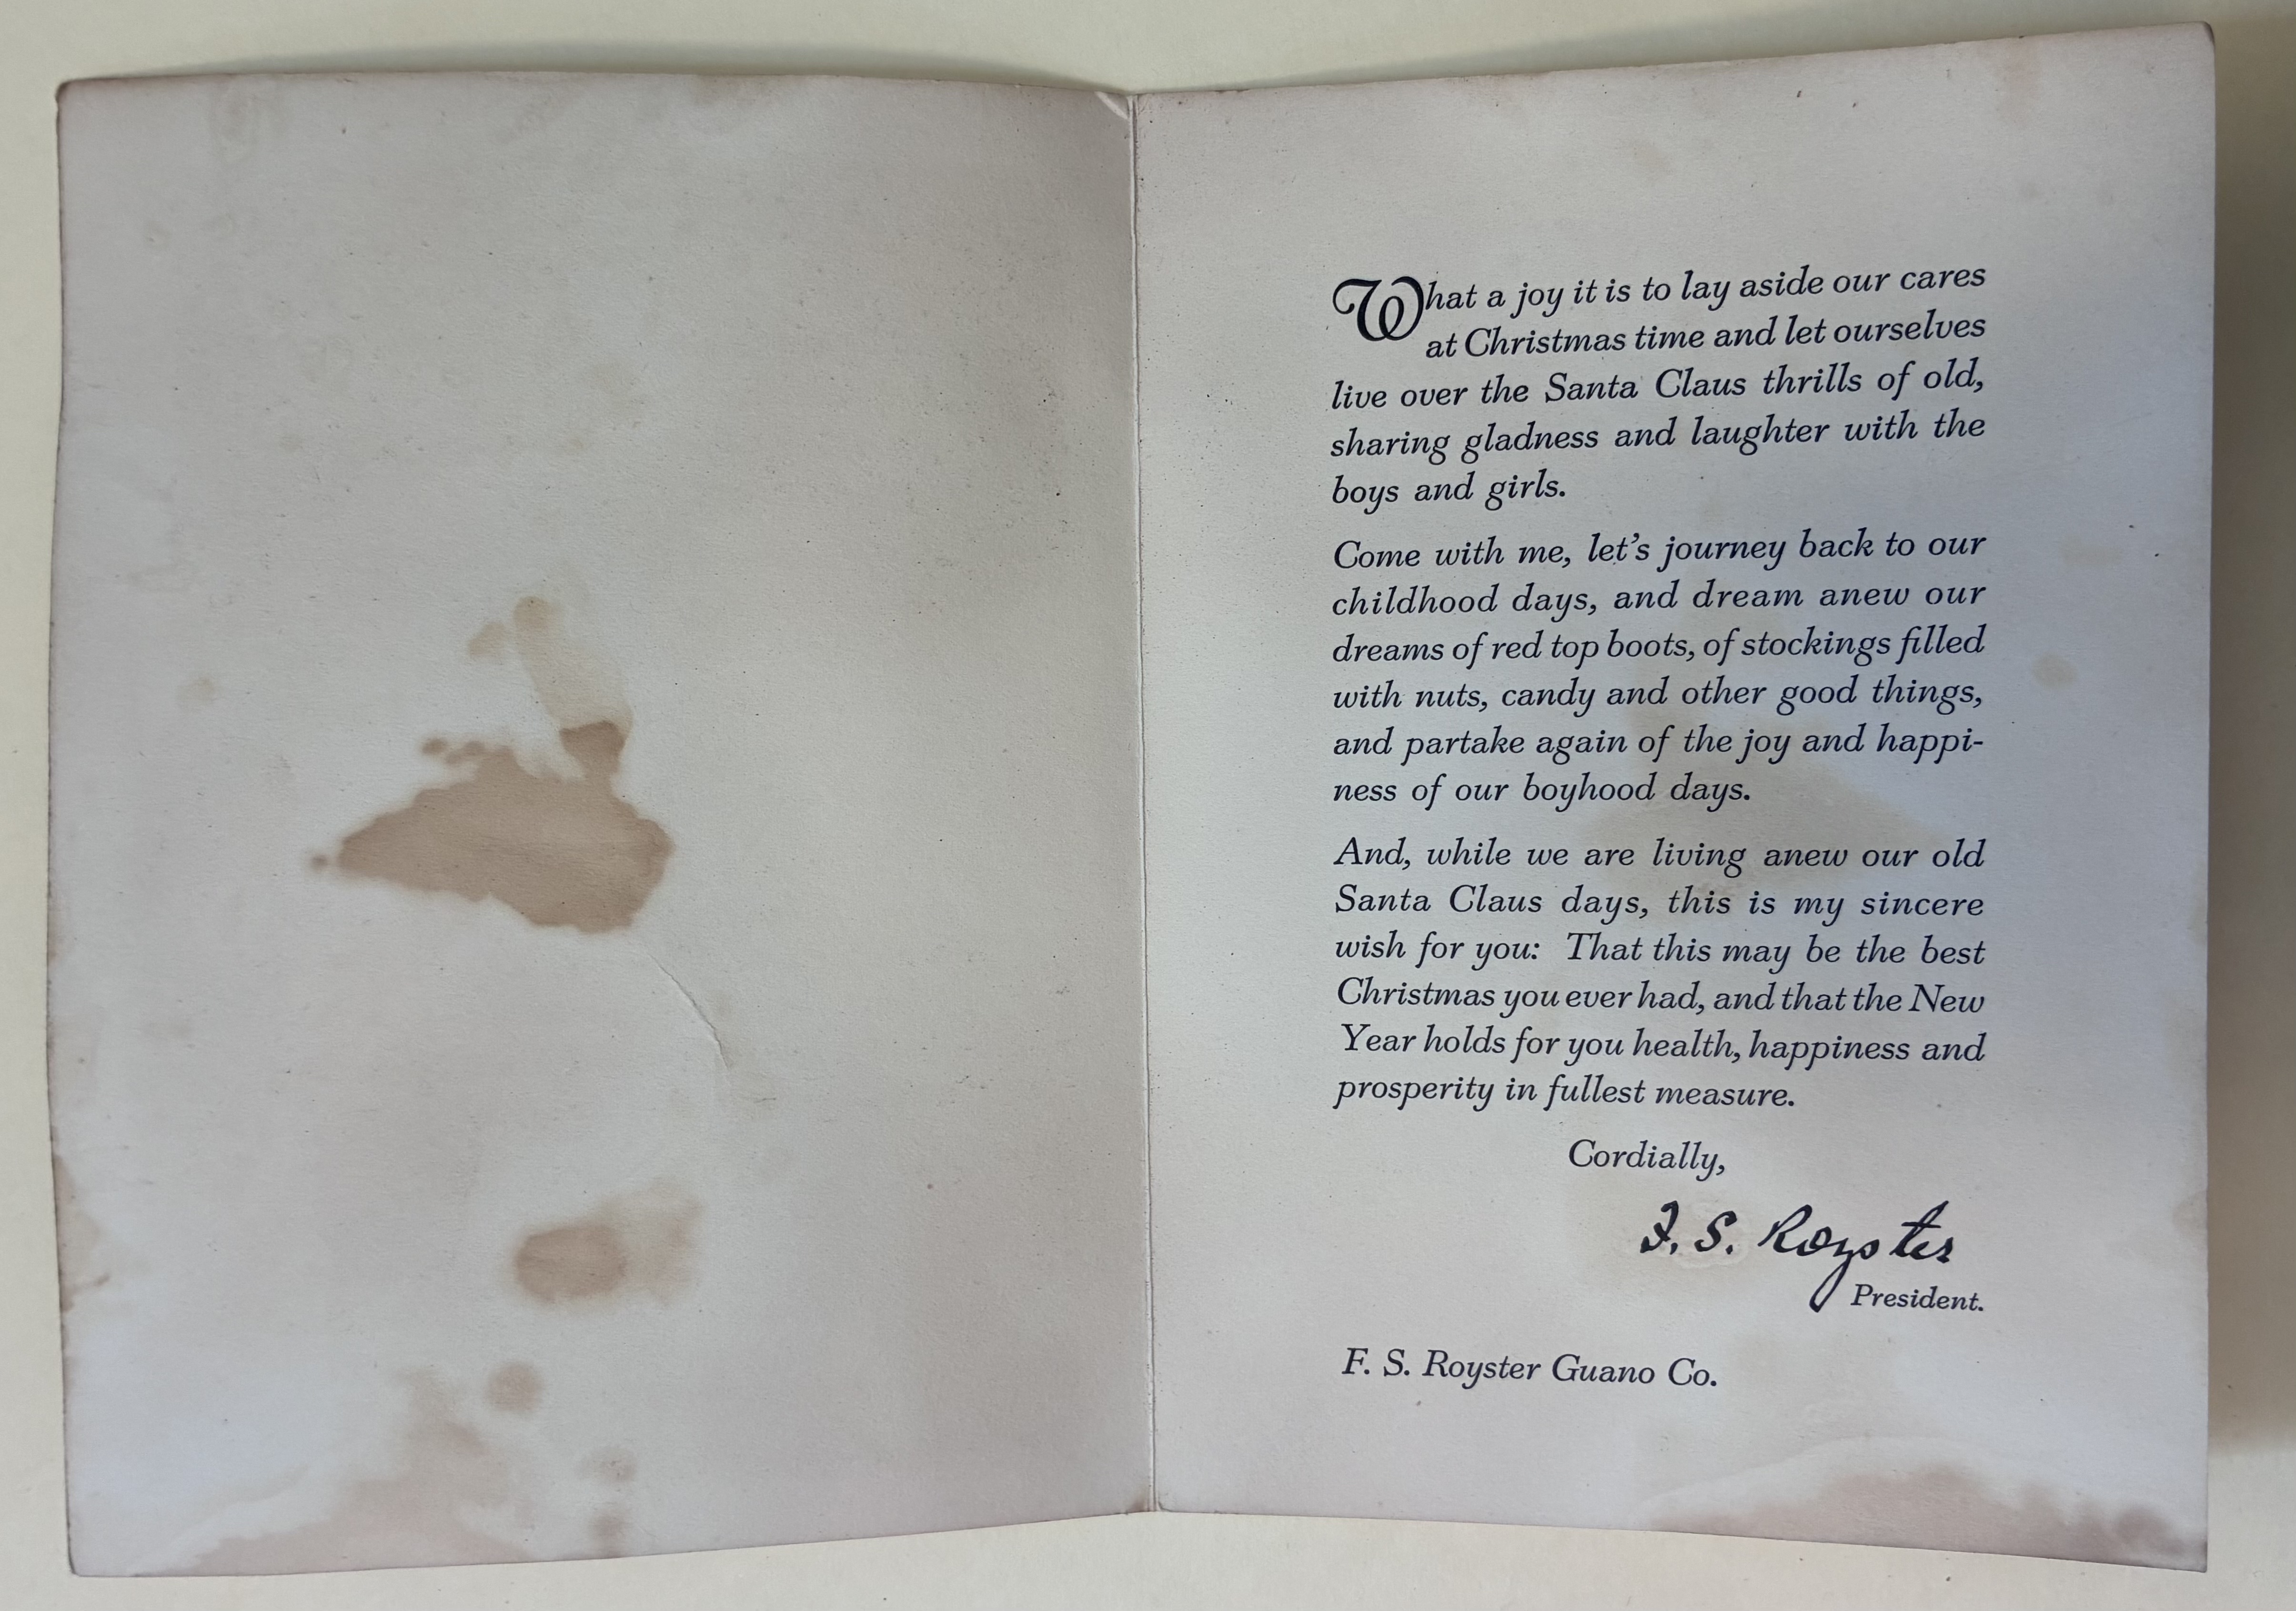 What a joy it is to lay aside our cares
at Christmas time and let ourselves
live over the Santa Claus thrills of old,
sharing gladness and laughter with the
boys and girls.
Come with me, let's journey back to our
childhood days, and dream anew our
dreams of red top boots, of stockings filled
with nuts, candy and other good things,
and partake again of the joy and happi-
ness of our boyhood days.
And, while we are living anew our old
Santa Claus days, this is my sincere
wish for you: That this may be the best
Christmas you ever had, and that the New
Year holds for you health, happiness and
prosperity in fullest measure.
Cordially,
F. S. Royster
President.
F. S. Royster Guano Co.